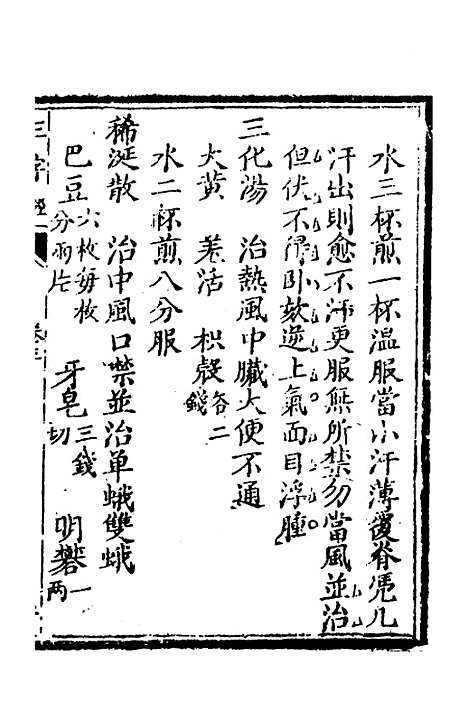 水三杯煎一杯溫服當小汗薄覆脊凭几
汗出則愈不汗更服無所禁勿當風並治
但伏不得卧欬逆上氣面目浮腫
三化湯　治熱風中臟大便不通
大黃　羌活　枳殼各二錢
水二杯煎八分服
稀涎散　治中風口禁並治单蛾雙蛾
巴豆六枚每枚分兩片　牙皂三錢切　明礬一兩
三字經